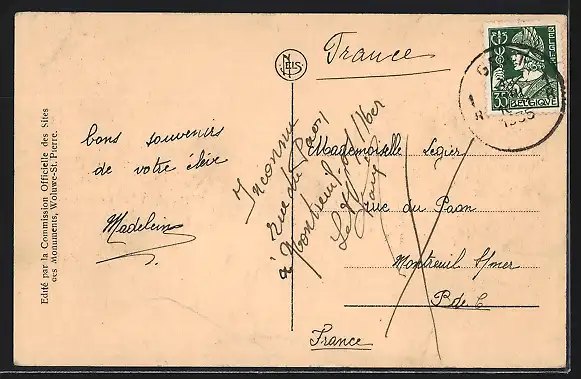 Edité par la Commission Officielle des Sites
des Monuments, Woluwe-St. Pierre.
NELS
France
BELGIE
35
BELGIQUE
1935
bons souvenirs
de votre élève
Madeleine
Inconnue
rue du Paon
à Montreuil s/Mer
Le
Mademoiselle Legier
rue du Paon
Montreuil s/mer
P. de C
France